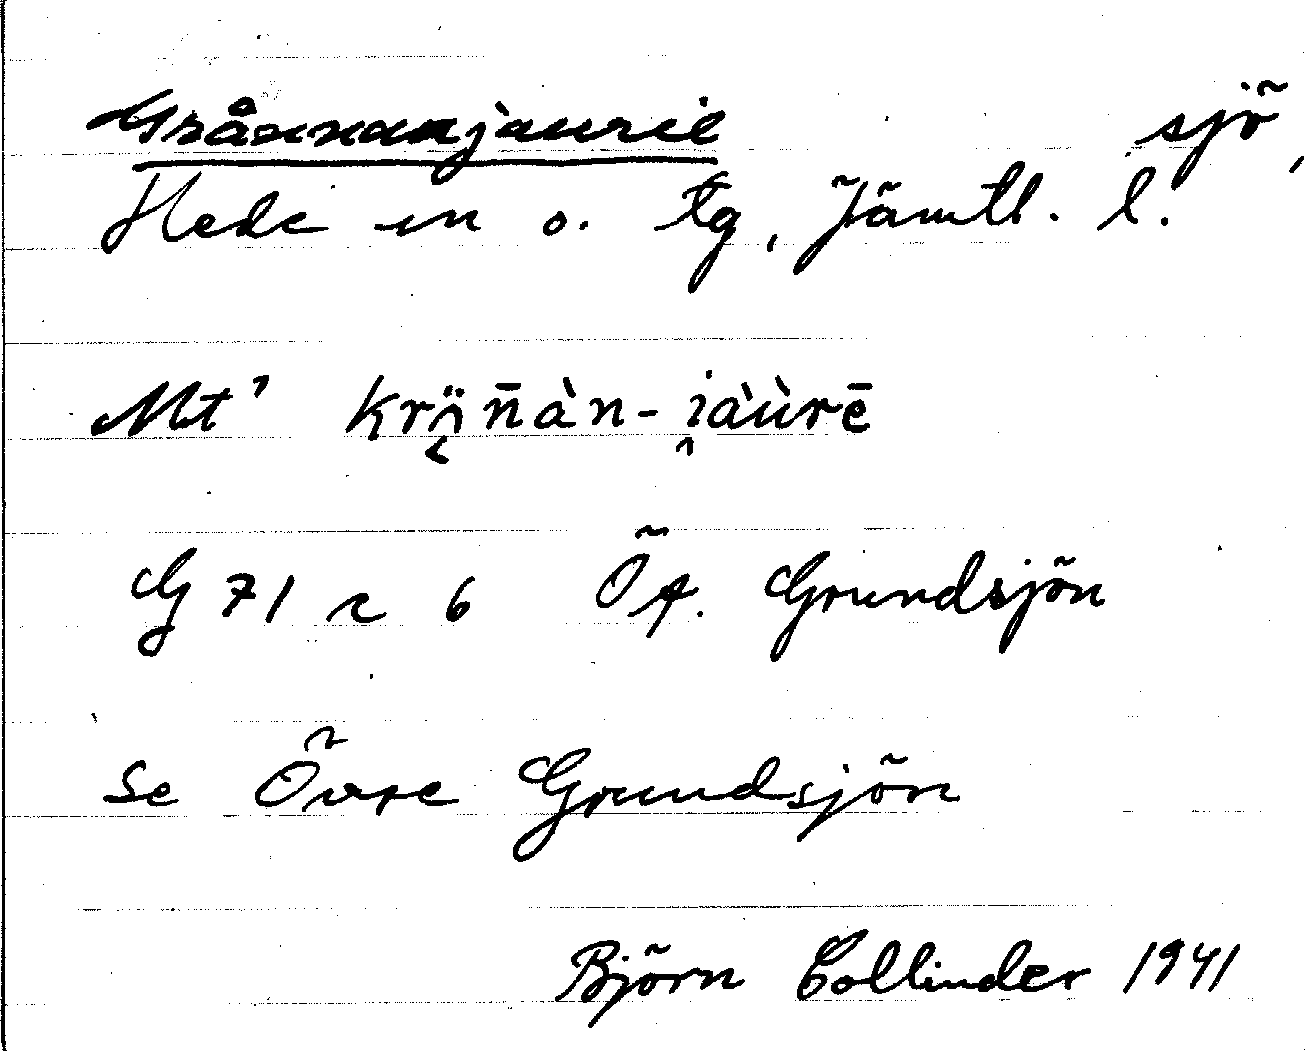 Grånnanjaurie sjö,
Hede sn o. tg, Jämtl. l.
Mt'
G 71 c 6 Öf. Grundsjön
se Övre Grundsjön
Björn Collinder 1941